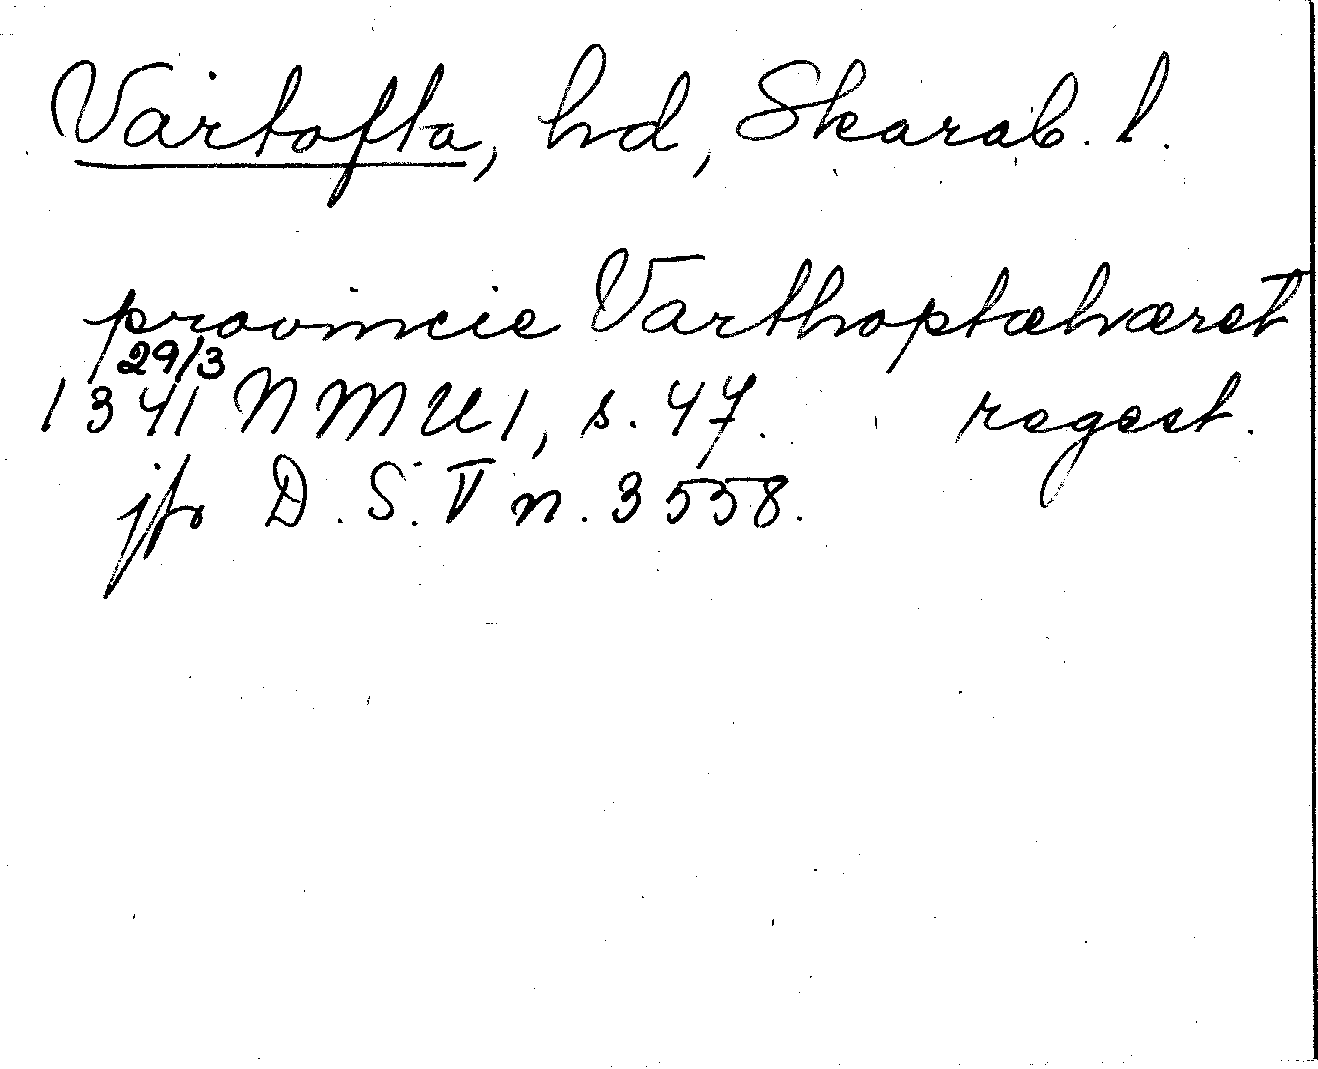 Vartofta, hd, Skarab. l.
provincie Varthoptæhæret
29/3
1341 NMU 1, s. 47. regest.
jfr D. S. V n. 3558.